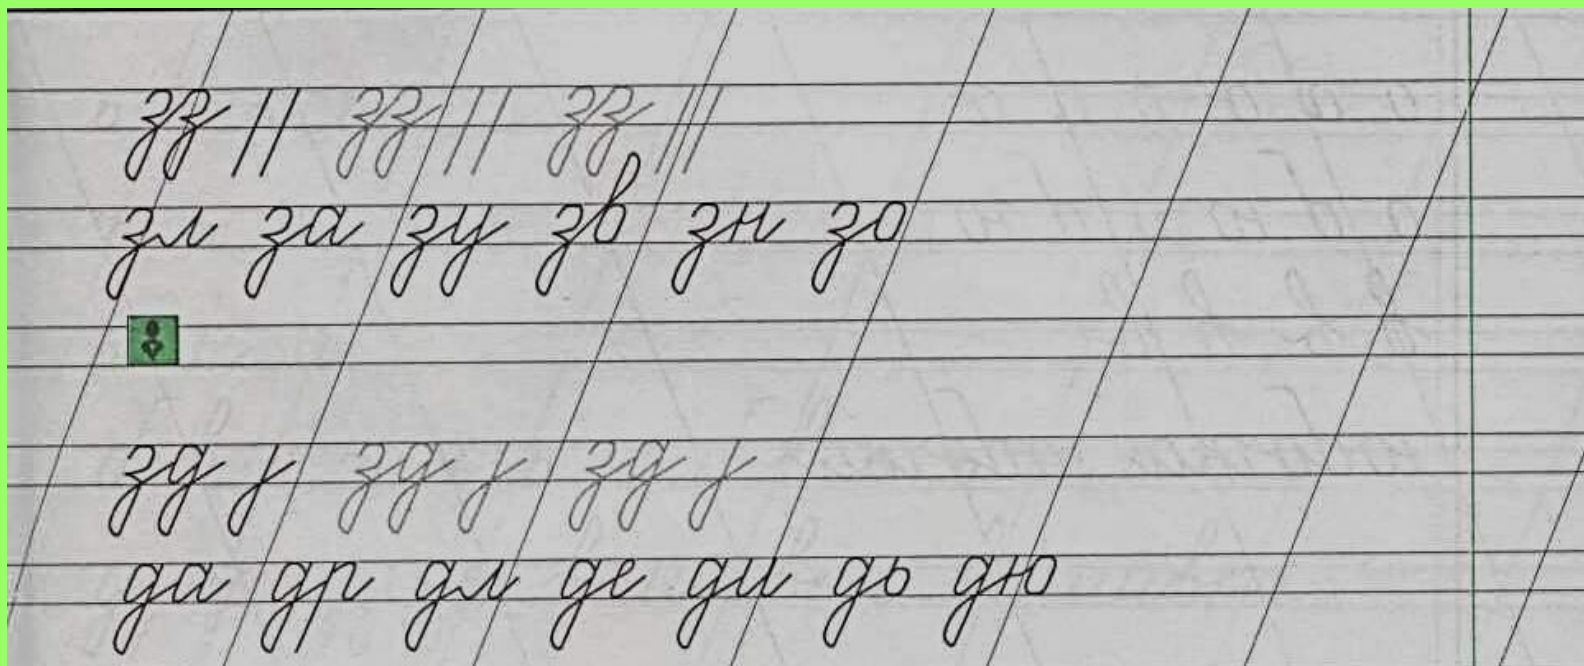 зз || зз || зз ||
зл за зу зв зн зо
зд ȷ зд ȷ зд ȷ
да др дл де ди дь дю